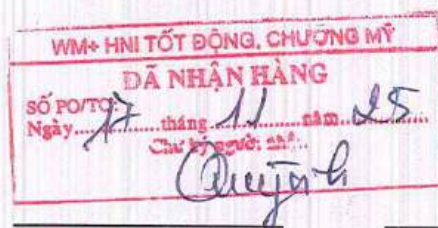 WM+ HNI TỐT ĐỘNG, CHƯƠNG MỸ
ĐÃ NHẬN HÀNG
SỐ PO/TO:
Ngày 17 tháng 11 năm 25
Chữ ký người
Quỳnh